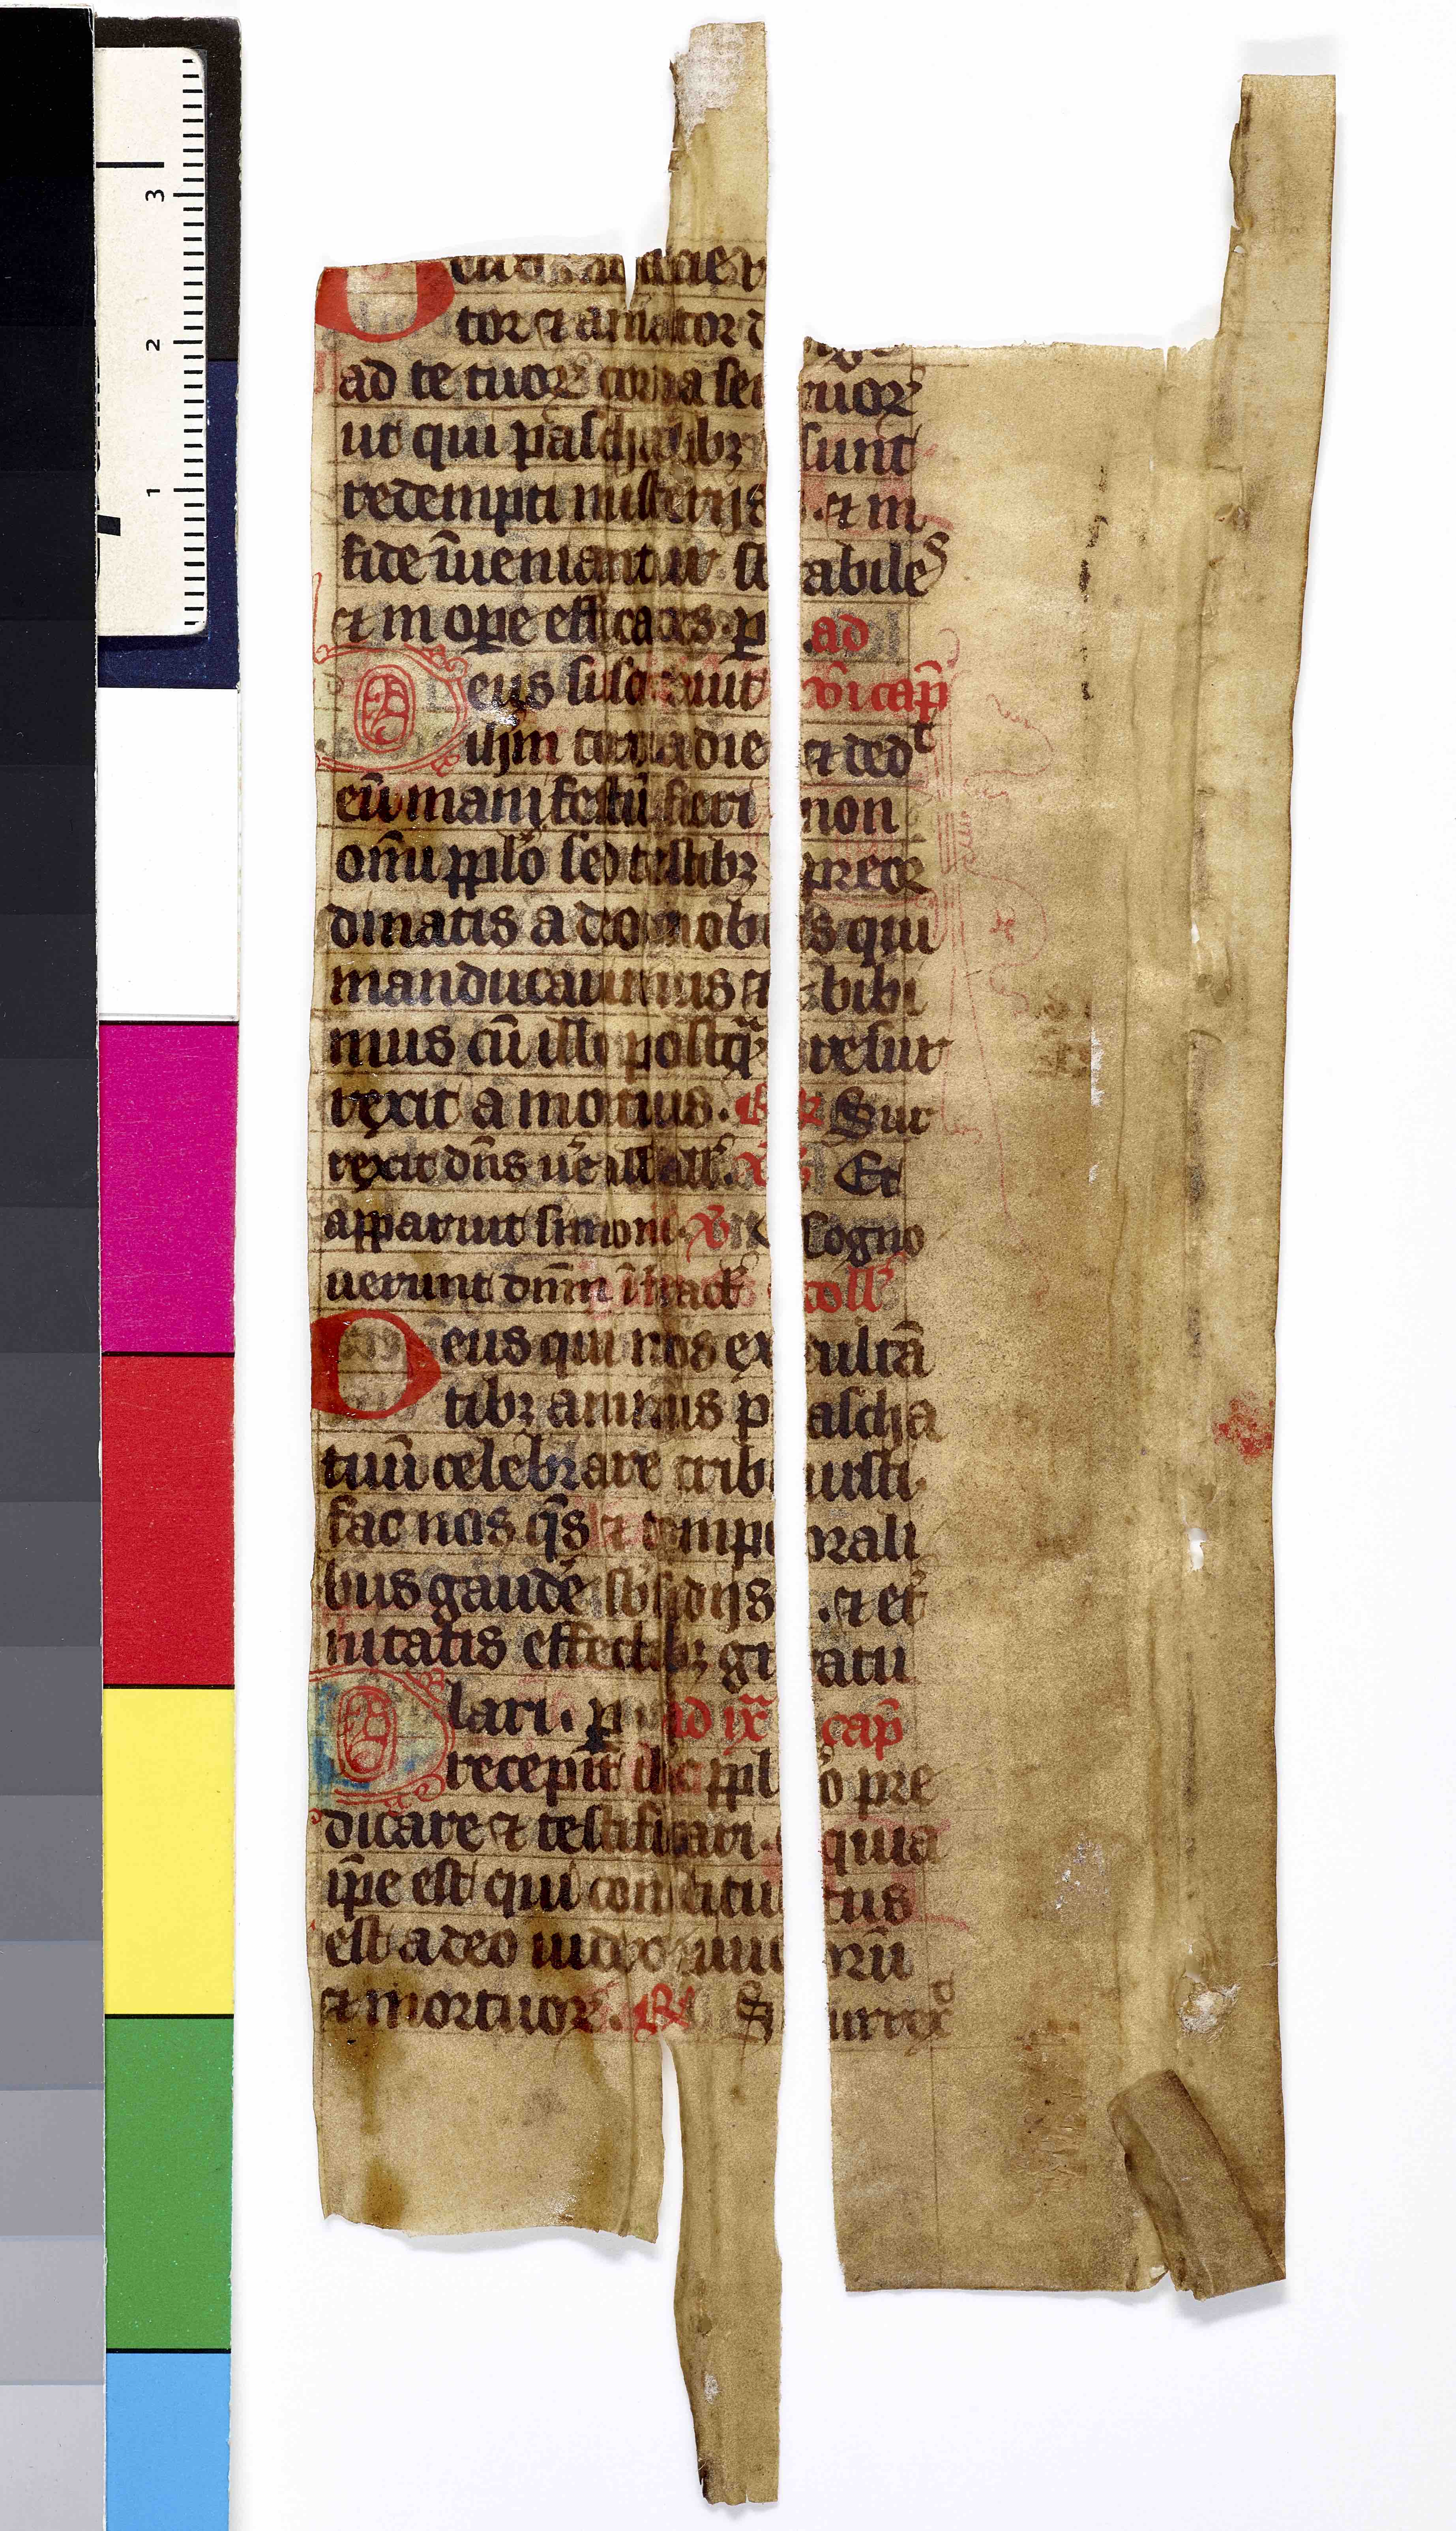 tor ⁊ amator d
ad te tuoꝝ corda ser uoꝝ
ut qui paschalibꝫ sunt
redempti misterijs . ⁊ in
fide īueniantur st abiles
⁊ in oꝑe efficaces . ꝑ . ad
Deus suscitauit vi cap̄
ihm tercia die ⁊ dedᵗ
eū manifestū fieri non
oīm ppl̓o sed testibꝫ preor
dinatis a deo nobis qui
manducauimus ⁊ bibi
mus cū illo postqᷓ resur
rexit a mortuis . ℟ Sur
rexit dn̄s u̓e all̓ all̓ . ℣ Et
apparuit simoni . ℣ Cogno
uerunt dnm̄ ī fractˢ coll̓
Deus qui nos exultā
tibꝫ animis pascha
tuū celebrare tribuisti .
fac nos qs̄ ⁊ temporali
bus gaude̓ sb̓sidijs . ⁊ et̓
nitatis effectibꝫ gratu
lari . ꝑ ad ixᷓ cap̄
Precepit ppl̓o pre
dicare ⁊ testificari . quia
ip̄e est qui constitutus
est a deo iudex uiuorū
⁊ mortuoꝝ . ℟ Surrexᵗ